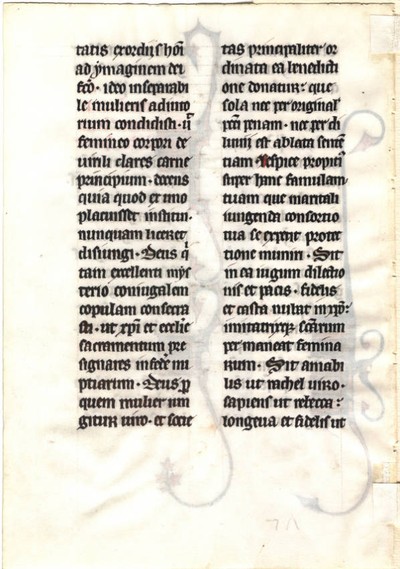 tatis exordiis hoi
ad ymaginem dei
fco · ideo inseparabi
le mulieris adiuto
rium condidisti · ut
femineo corpori de
virili dares carne
principium · docens
quia quod ex uno
placuisset institui ·
nunquam liceret
disiungi · Deus q
tam excellenti mys
terio coniugalem
copulam consecra
sti · ut xpi et ecclie
sacramentum pre
signares in federe nu
ptiarum · Deus p
quem mulier iun
gitur viro · et socie
tas principaliter or
dinata ea benedicti
one donatur : que
sola nec per original
pcci penam · nec per di
luuii est ablata senten
tiam Respice propiti
super hanc famulam
tuam que maritali
iungenda consortio
tua se expetit protec
tione muniri · Sit
in ea iugum dilectio
nis et pacis · fidelis
et casta nubat in xpo :
imitatrixque scarum
permaneat femina
rum · Sit amabi
lis ut rachel viro ·
sapiens ut rebecca :
longeua et fidelis ut